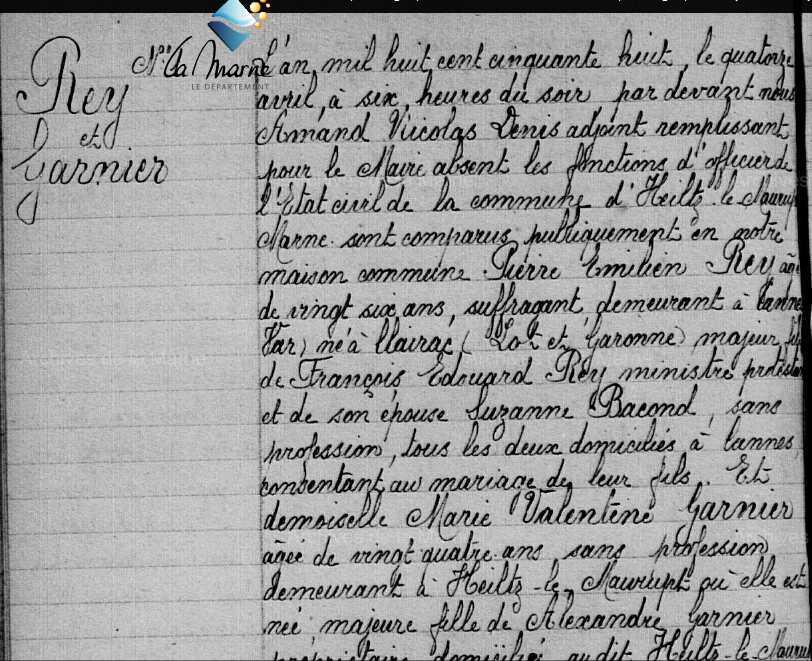 La Marne
LE DÉPARTEMENT
Rey
et
Garnier
L'an mil huit cent cinquante huit, le quatorze
avril, à six, heures du soir par devant nous
Amand Nicolas Denis adjoint remplissant
pour le Maire absent les fonctions d'officier de
l'Etat civil de la commune d'Heiltz-le-Maurupt
Marne. sont comparus publiquement en notre
maison commune Pierre Emilien Rey âgé
de vingt six ans, suffragant demeurant à
Var) né à Clairac, (Lot et Garonne) majeur, fils
de François Edouard Rey ministre protestant
et de son épouse Suzanne Bacond, sans
profession, tous les deux domiciliés à Cannes
consentant au mariage de leur fils. Et
demoiselle Marie Valentine Garnier
âgée de vingt quatre ans, sans profession
demeurant à Heiltz-le-Maurupt où elle est
née majeure fille de Alexandre Garnier
propriétaire domicilié audit Heiltz-le-Maurupt